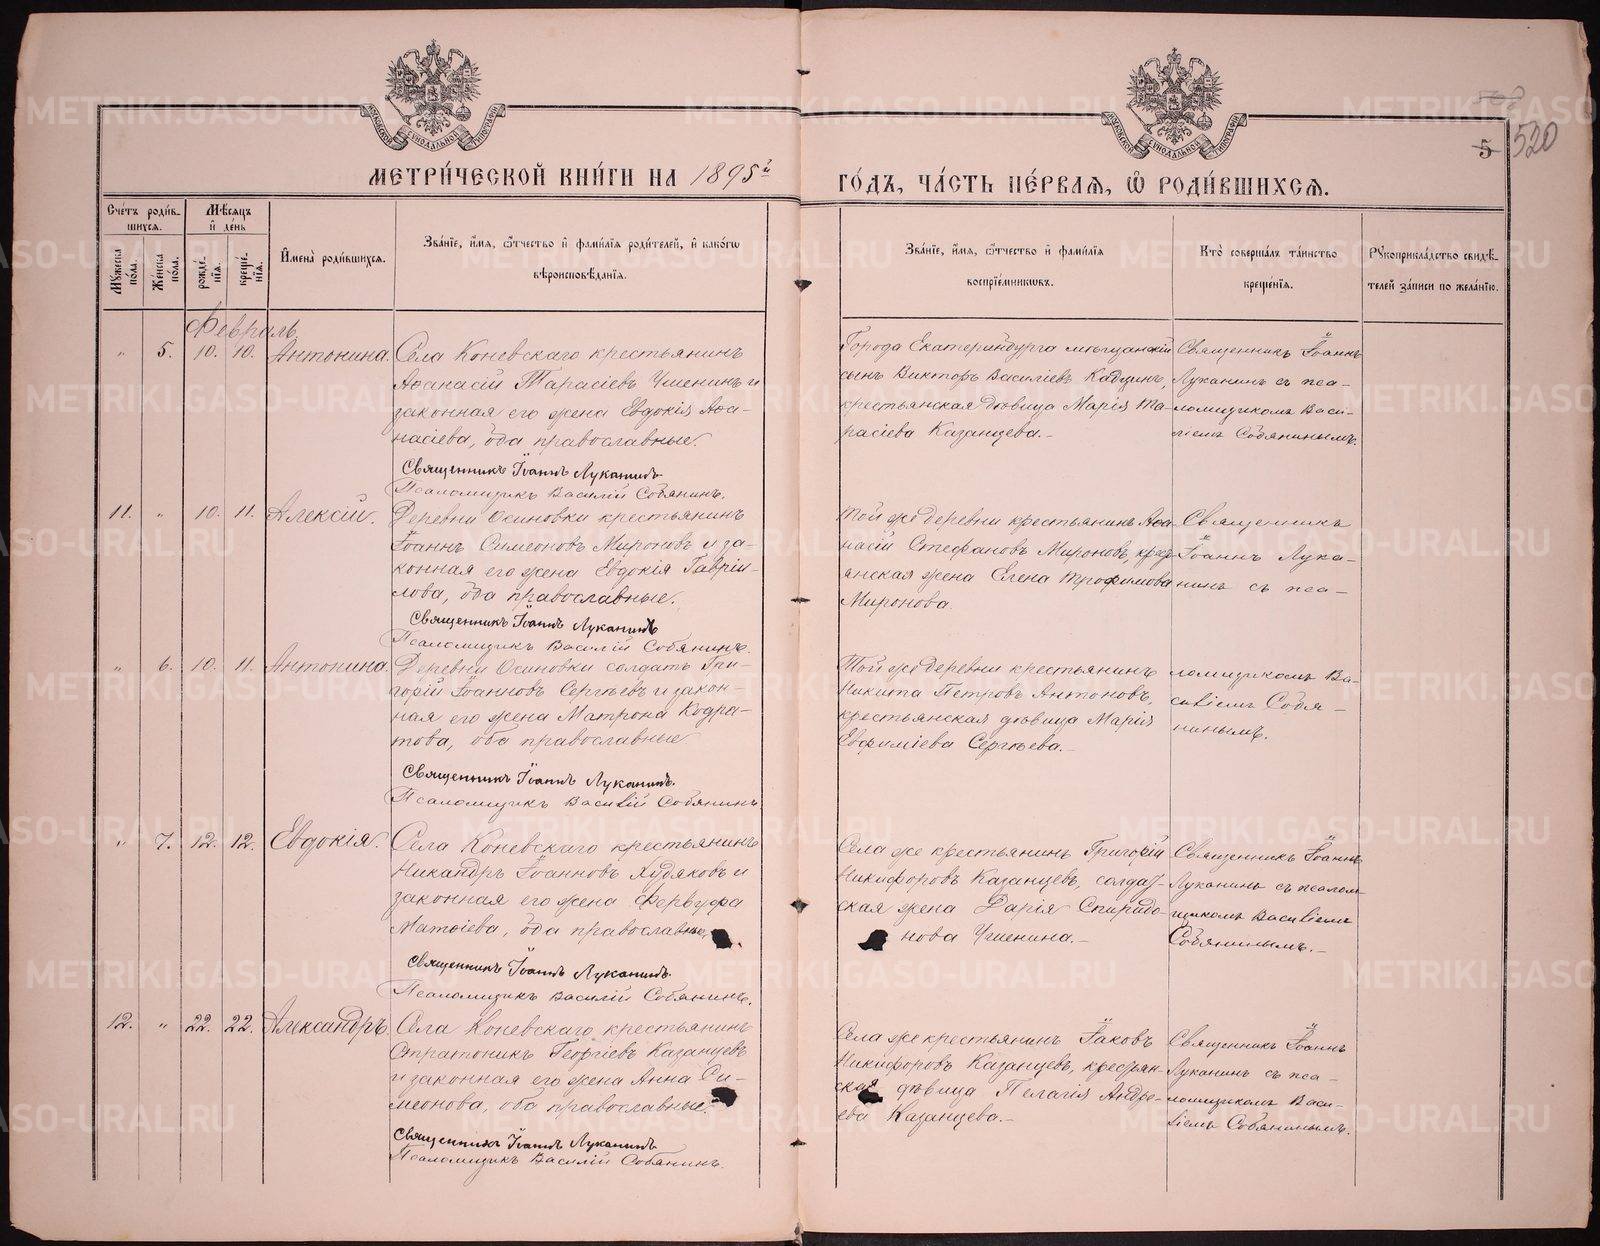 МЕТРИ́ЧЕСКОЙ КНИ́ГИ НА 1895й
ГО́ДЪ, ЧА́СТЬ ПЕ́РВАѦ, Ѿ РОДИ́ВШИХСѦ.
5
520
Сче́тъ роди́в-
шихсѧ.
Мѣ́сѧцъ
и҆ де́нь
Мꙋ́жеска
по́ла.
Же́нска
по́ла.
рожде́-
нїѧ.
креще́-
нїѧ.
И҆мена̀ роди́вшихсѧ.
Зва́нїе, и҆́мѧ, ѻ҆́тчество и҆ фами́лїѧ роди́телей, и҆ како́гѡ
вѣроисповѣ́данїѧ.
Зва́нїе, и҆́мѧ, ѻ҆́тчество и҆ фами́лїѧ
воспрїе́мникѡвъ.
Кто̀ соверша́лъ та́инство
креще́нїѧ.
Рꙋкоприкла́дство свидѣ́-
телей за́писи по жела́нїю.
Февраль
" 5. 10. 10. Антонина.
Села Коневскаго крестьянинъ
Аѳанасій Тарасіевъ Ушенинъ и
законная его жена Евдокія Аѳа-
насіева, оба православные.
Священникъ Іоаннъ Луканинъ
Псаломщикъ Василій Собянинъ.
Города Екатеринбурга мѣщанскій
сынъ Викторъ Василіевъ Кадцинъ,
крестьянская дѣвица Марія Та-
расіева Казанцева.-
Священникъ Іоаннъ
Луканинъ съ пса-
ломщикомъ Васи-
ліемъ Собянинымъ.
11. " 10. 11. Алексій.
Деревни Осиновки крестьянинъ
Іоаннъ Симеоновъ Мироновъ и за-
конная его жена Евдокія Гавріи-
лова, оба православные.
Священникъ Іоаннъ Луканинъ
Псаломщикъ Василій Собянинъ.
Той же деревни крестьянинъ Аѳа-
насій Стефановъ Мироновъ, крест-
янская жена Елена Трофимова
Миронова.
Священникъ
Іоаннъ Лука-
нинъ съ пса-
" 6. 10. 11. Антонина.
Деревни Осиновки солдатъ Гри-
горій Іоанновъ Сергѣевъ и закон-
ная его жена Матрона Кодра-
това, оба православные
Священникъ Іоаннъ Луканинъ.
Псаломщикъ Василій Собянинъ
Той же деревни крестьянинъ
Никита Петровъ Антоновъ,
крестьянская дѣвица Марія
Евфиміева Сергѣева.-
ломщикомъ Ва-
силіемъ Собя-
нинымъ.
" 7. 12. 12. Евдокія.
Села Коневскаго крестьянинъ
Никандръ Іоанновъ Худяковъ и
законная его жена Фервуфа
Матѳіева, оба православные,
Священникъ Іоаннъ Луканинъ.
Псаломщикъ Василій Собянинъ.
Села же крестьянинъ Григорій
Никифоровъ Казанцевъ, солдат-
ская жена Дарія Спиридо-
нова Ушенина.-
Священникъ Іоаннъ
Луканинъ съ псалом
щикомъ Василіемъ
Собянинымъ.-
12. " 22. 22. Александръ.
Села Коневскаго крестьянинъ
Стратоникъ Георгіевъ Казанцевъ
и законная его жена Анна Си-
меонова, оба православные.
Священникъ Іоаннъ Луканинъ
Псаломщикъ Василій Собянинъ.
Села же крестьянинъ Іаковъ
Никифоровъ Казанцевъ, крестьян-
ская дѣвица Пелагія Андре-
ева Казанцева.-
Священникъ Іоаннъ
Луканинъ съ пса-
ломщикомъ Васи-
ліемъ Собянинымъ.
METRIKI.GASO-URAL.RU